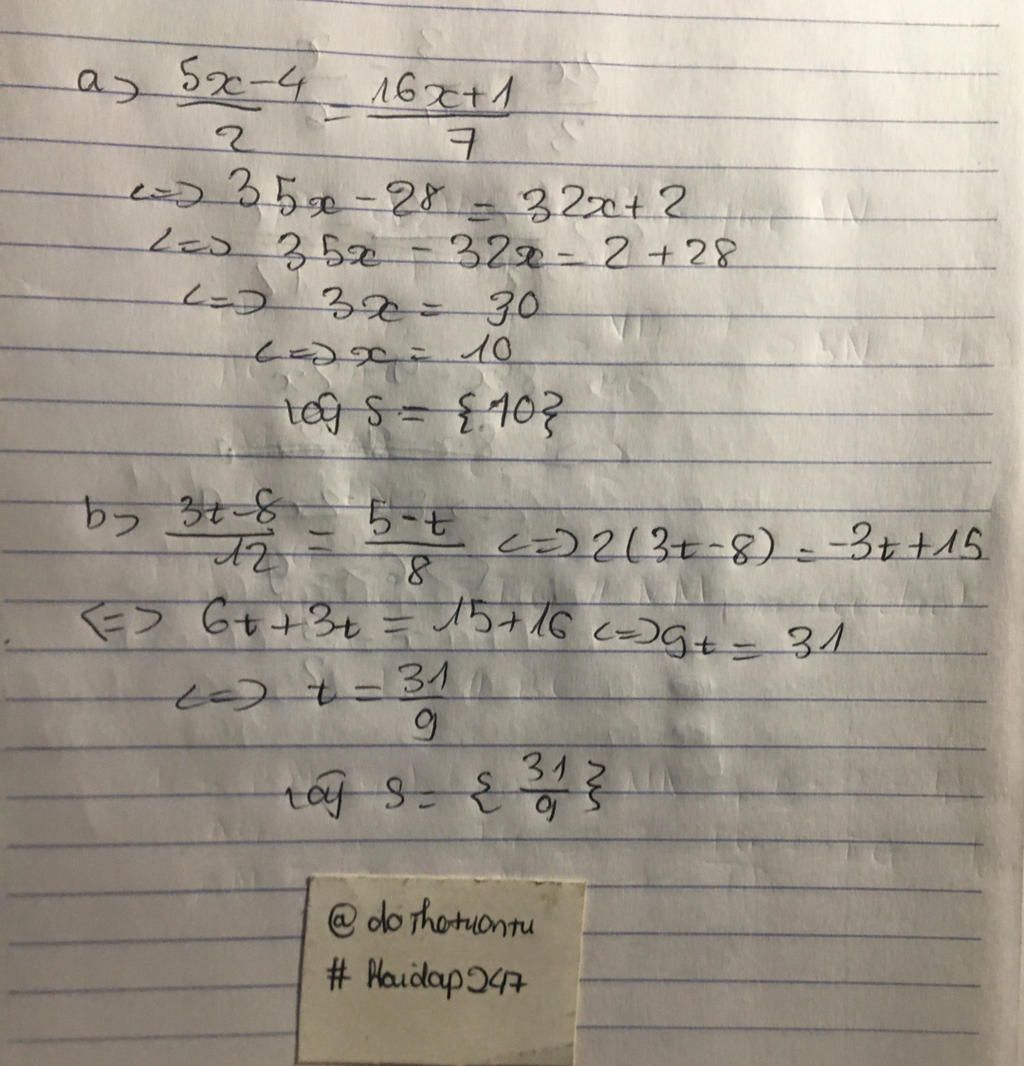 a> (5x-4)/2 = (16x+1)/7
<=> 35x - 28 = 32x + 2
<=> 35x - 32x = 2 + 28
<=> 3x = 30
<=> x = 10
Vậy S = {10}
b> (3t-8)/12 = (5-t)/8 <=> 2(3t-8) = -3t+15
<=> 6t+3t = 15+16 <=> 9t = 31
<=> t = 31/9
Vậy S = {31/9}
@ dothotuontu
# Hoidap247